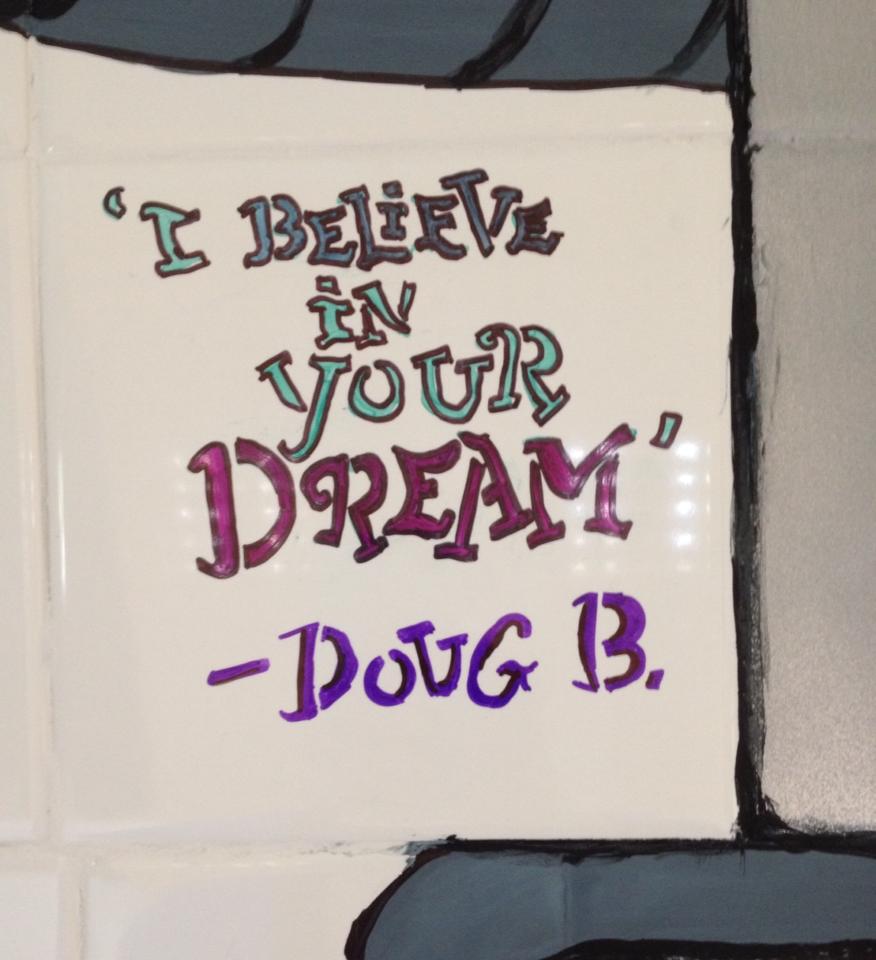 'I BELiEVE
iN
YOUR
DREAM'
- DOUG B.